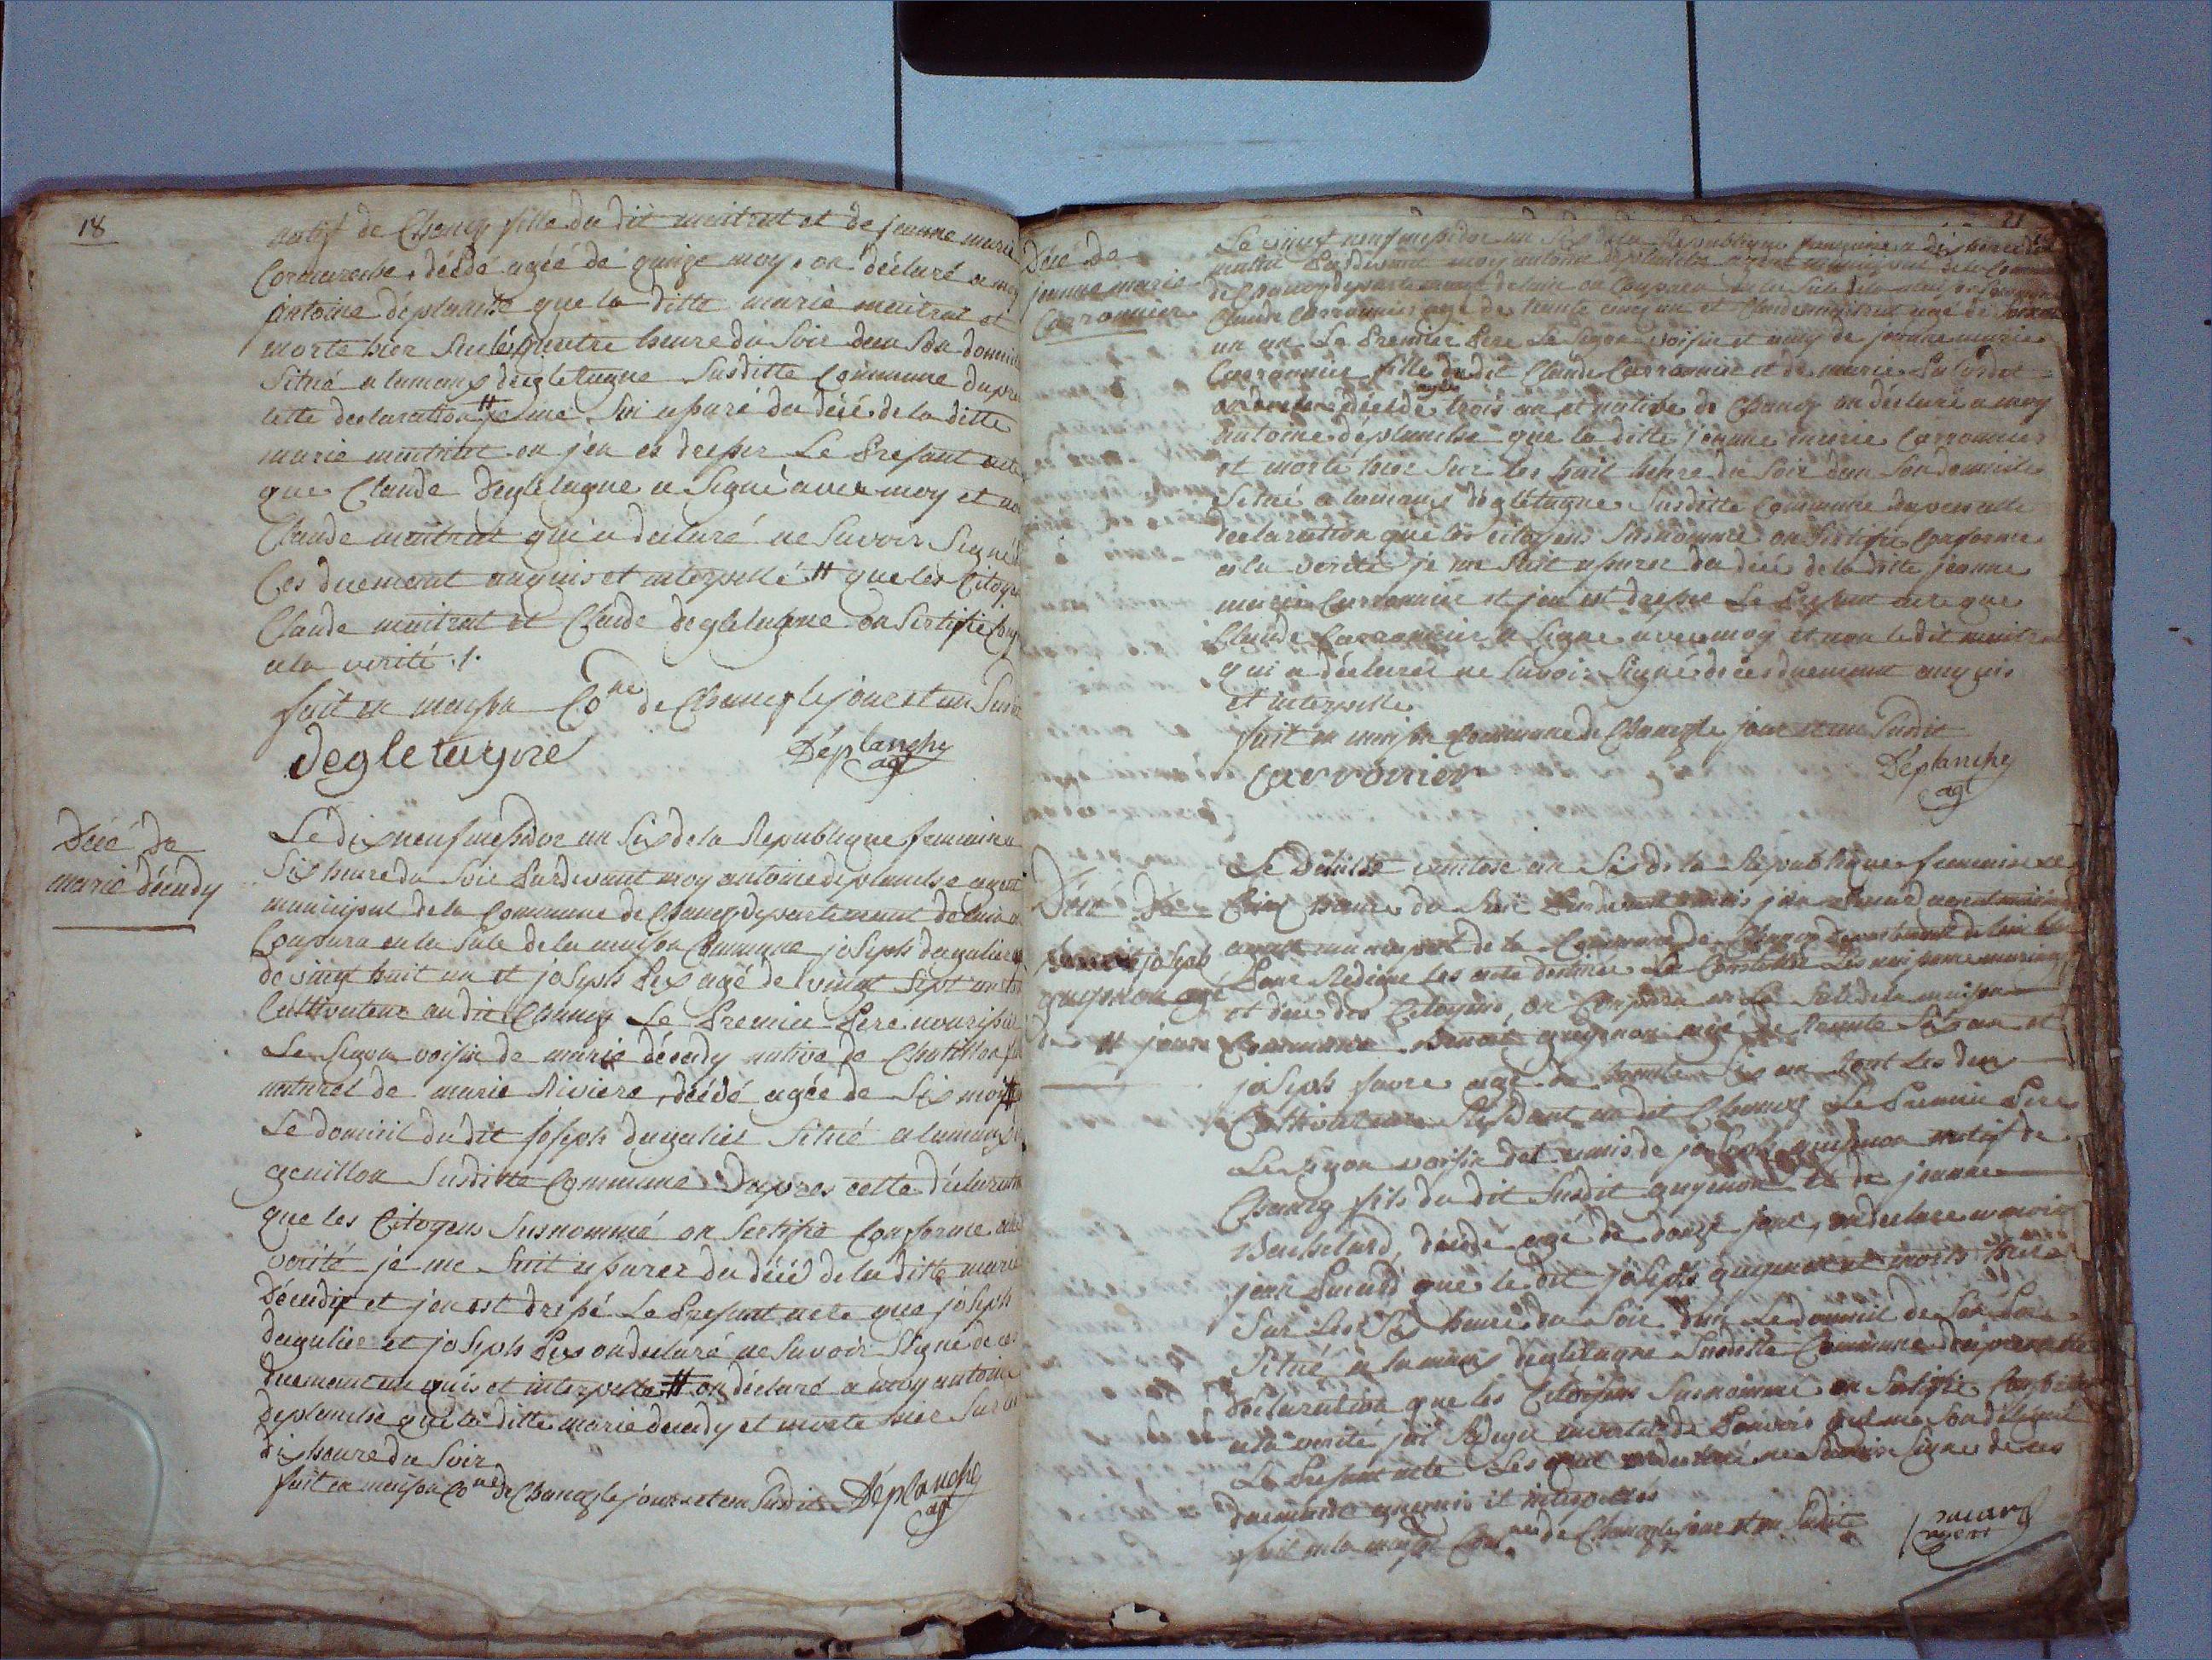 18
natif de Chanoz fille du dit maitrat et de jeanne marie
Cormareche, décédé agéé de quinze moy, on déclaré a moy
antoine déplanche que la ditte marie maitrat et
morte hier sur les quattre heure du Soir dans son domicile
Situé a lamans degletagne Susditte Commune dapre
cette declaration # je me Sui asuré du décé de la ditte
marie maitrat en j'en es dresser Le Presant acte
que Claude degletagne a Signé avec moy et non
Claude maitrat qui a declaré ne Savoir Signé de
Ces duement anquis et interpellé # que les Citoyen
Claude maitrat et Claude degletagne on Sertifié
a la verité ./.
fait en maison Co.ne de Chanoz le jour et an Susdit
degletagne
Déplanche
agt
Décé de
marie décudy
Le dix neuf messidor an Six de la Republique francaise a
Six heure du Soir Pardevant moy antoine deplanche agent
municipal de la Commune de Chanoz departement de lain on
Conparu en la Sale de la maison Commune joseph dagalier
de vingt huit an et joseph Pix agé de vingt Sept an
Cultivateur au dit Chanoz Le Premier Pere nourisié
Le Segon voisin de marie décudy native de Chatillon
naturel de marie Riviere, décédé agée de Six moy #
Le domicil du dit joseph dagalier Situé a lamans
genillon Susditte Commune dapres cette déclaration
que les Citoyen Susnommé on Sertifié Conforme a la
verité je me Suit asurer du décé de la ditte marie
Décudy et j'en est dressé Le Presant acte que joseph
dagalier et joseph Pix on declaré ne Savoir Signe de ces
duement anquis et interpelle # on déclaré a moy antoine
deplanche que la ditte marie decudy et morte hier Sur les
dix heure du Soir
fait en maison Co.ne de Chanoz le jour et an Susdit
Déplanche
agt
21
Décé de
jeanne marie
Carronnier
Le vingt neuf messidor an Six de la Republique francaise a dix heure du
matin Pardevant moy antoine deplanche agent municipal de la Commune
de Chanoz departement de lain on Conparu en la Sale de la maison Commune
Claude Carronnier agé de trente cinq an et Claude maitrat agé de
un an Le Premier Pere Le Segon voisin et amy de jeanne marie
Carronnier fille du dit Claude Carronnier et de marie
décédé agée trois an et native de Chanoz on déclaré a moy
antoine déplanche que la ditte jeanne marie Carronnier
et morte hier Sur les huit heure du Soir dans Son domicile
Situé a lamans degletagne Susditte Commune dapres cette
declaration que les citoyens Susnommé on Sertifié Conforme
a la verité je me Suit asurer du décé de la ditte jeanne
marie Carronnier et jen est dresse Le Presant acte que
Claude Carronnier a Signe avec moy et non le dit maitrat
qui a déclarer ne Savoir Signé de ces duement anquis
et interpelle
fait en maison Commune de Chanoz le jour et an Susdit
Carronier
Déplanche
agt
Décé de
joseph
guyenon agé
de # jour
Le vantose an Six de la Republique francaise
Cinq heure du Soir Pardevant
municipal de la Commune de Chanoz departement de lain
Pour Rediger les acte destiné a Constater Les naissance mariage
et décé des Citoyens, on Conparu en La Sale de la maison
Commune Benoit guyenon agé de trente Six an et
joseph favre agé de trente Six an tout les deux
Cultivateur Residant au dit Chanoz Le Premier Pere
Le Segon voisin et amis de joseph guyenon natif de
Chanoz fils du dit Susdit guyenon et de jeanne
décédé agé de douze jour, on declare a moi
jean que le dit joseph guyenon et morts hiere
Sur Les Six heure du Soir dans Le domicil de Son Pere
Situé a lamans degletagne Susditte Commune dapres cette
declaration que les Citoyens Susnommé on Sertifié Conforme
a la verité jai Redigé en vertu de Pouvoir qui me Son délégué
Le Presant acte Les quel on declaré ne Savoir Signer de ces
duement anquis et interpelles
fait en la maison Com.ne de Chanoz le jour et an Susdit
agent